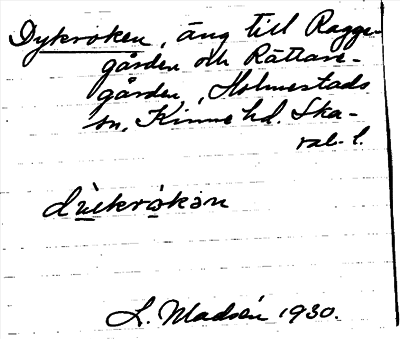 Dykroken, äng till Ragge-
gården och Rättare-
gården, Holmestads
sn. Kinne hd. Ska-
rab. l.
L. Madsén 1930.